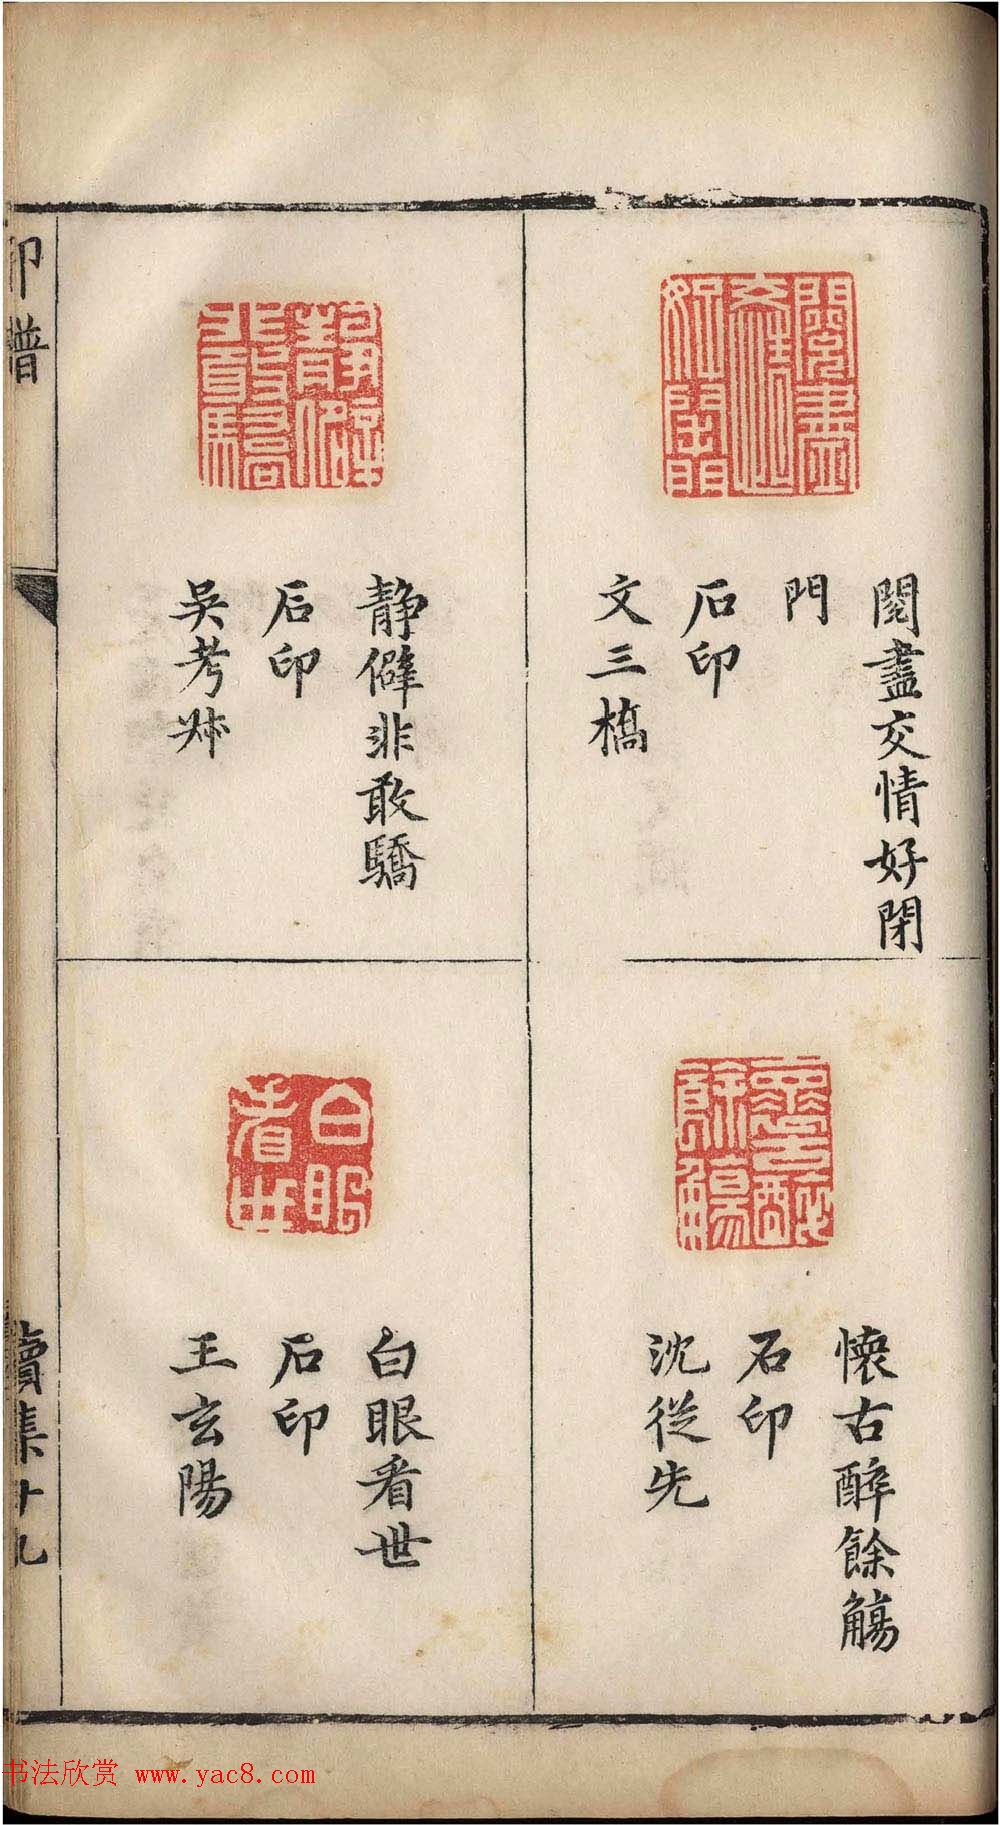 閱盡交情好閉
門
石印
文三橋
懷古醉餘觴
石印
沈從先
静僻非敢驕
石印
吳考叔
白眼看世
石印
王玄陽
印譜
續集十九
书法欣赏 www.yac8.com